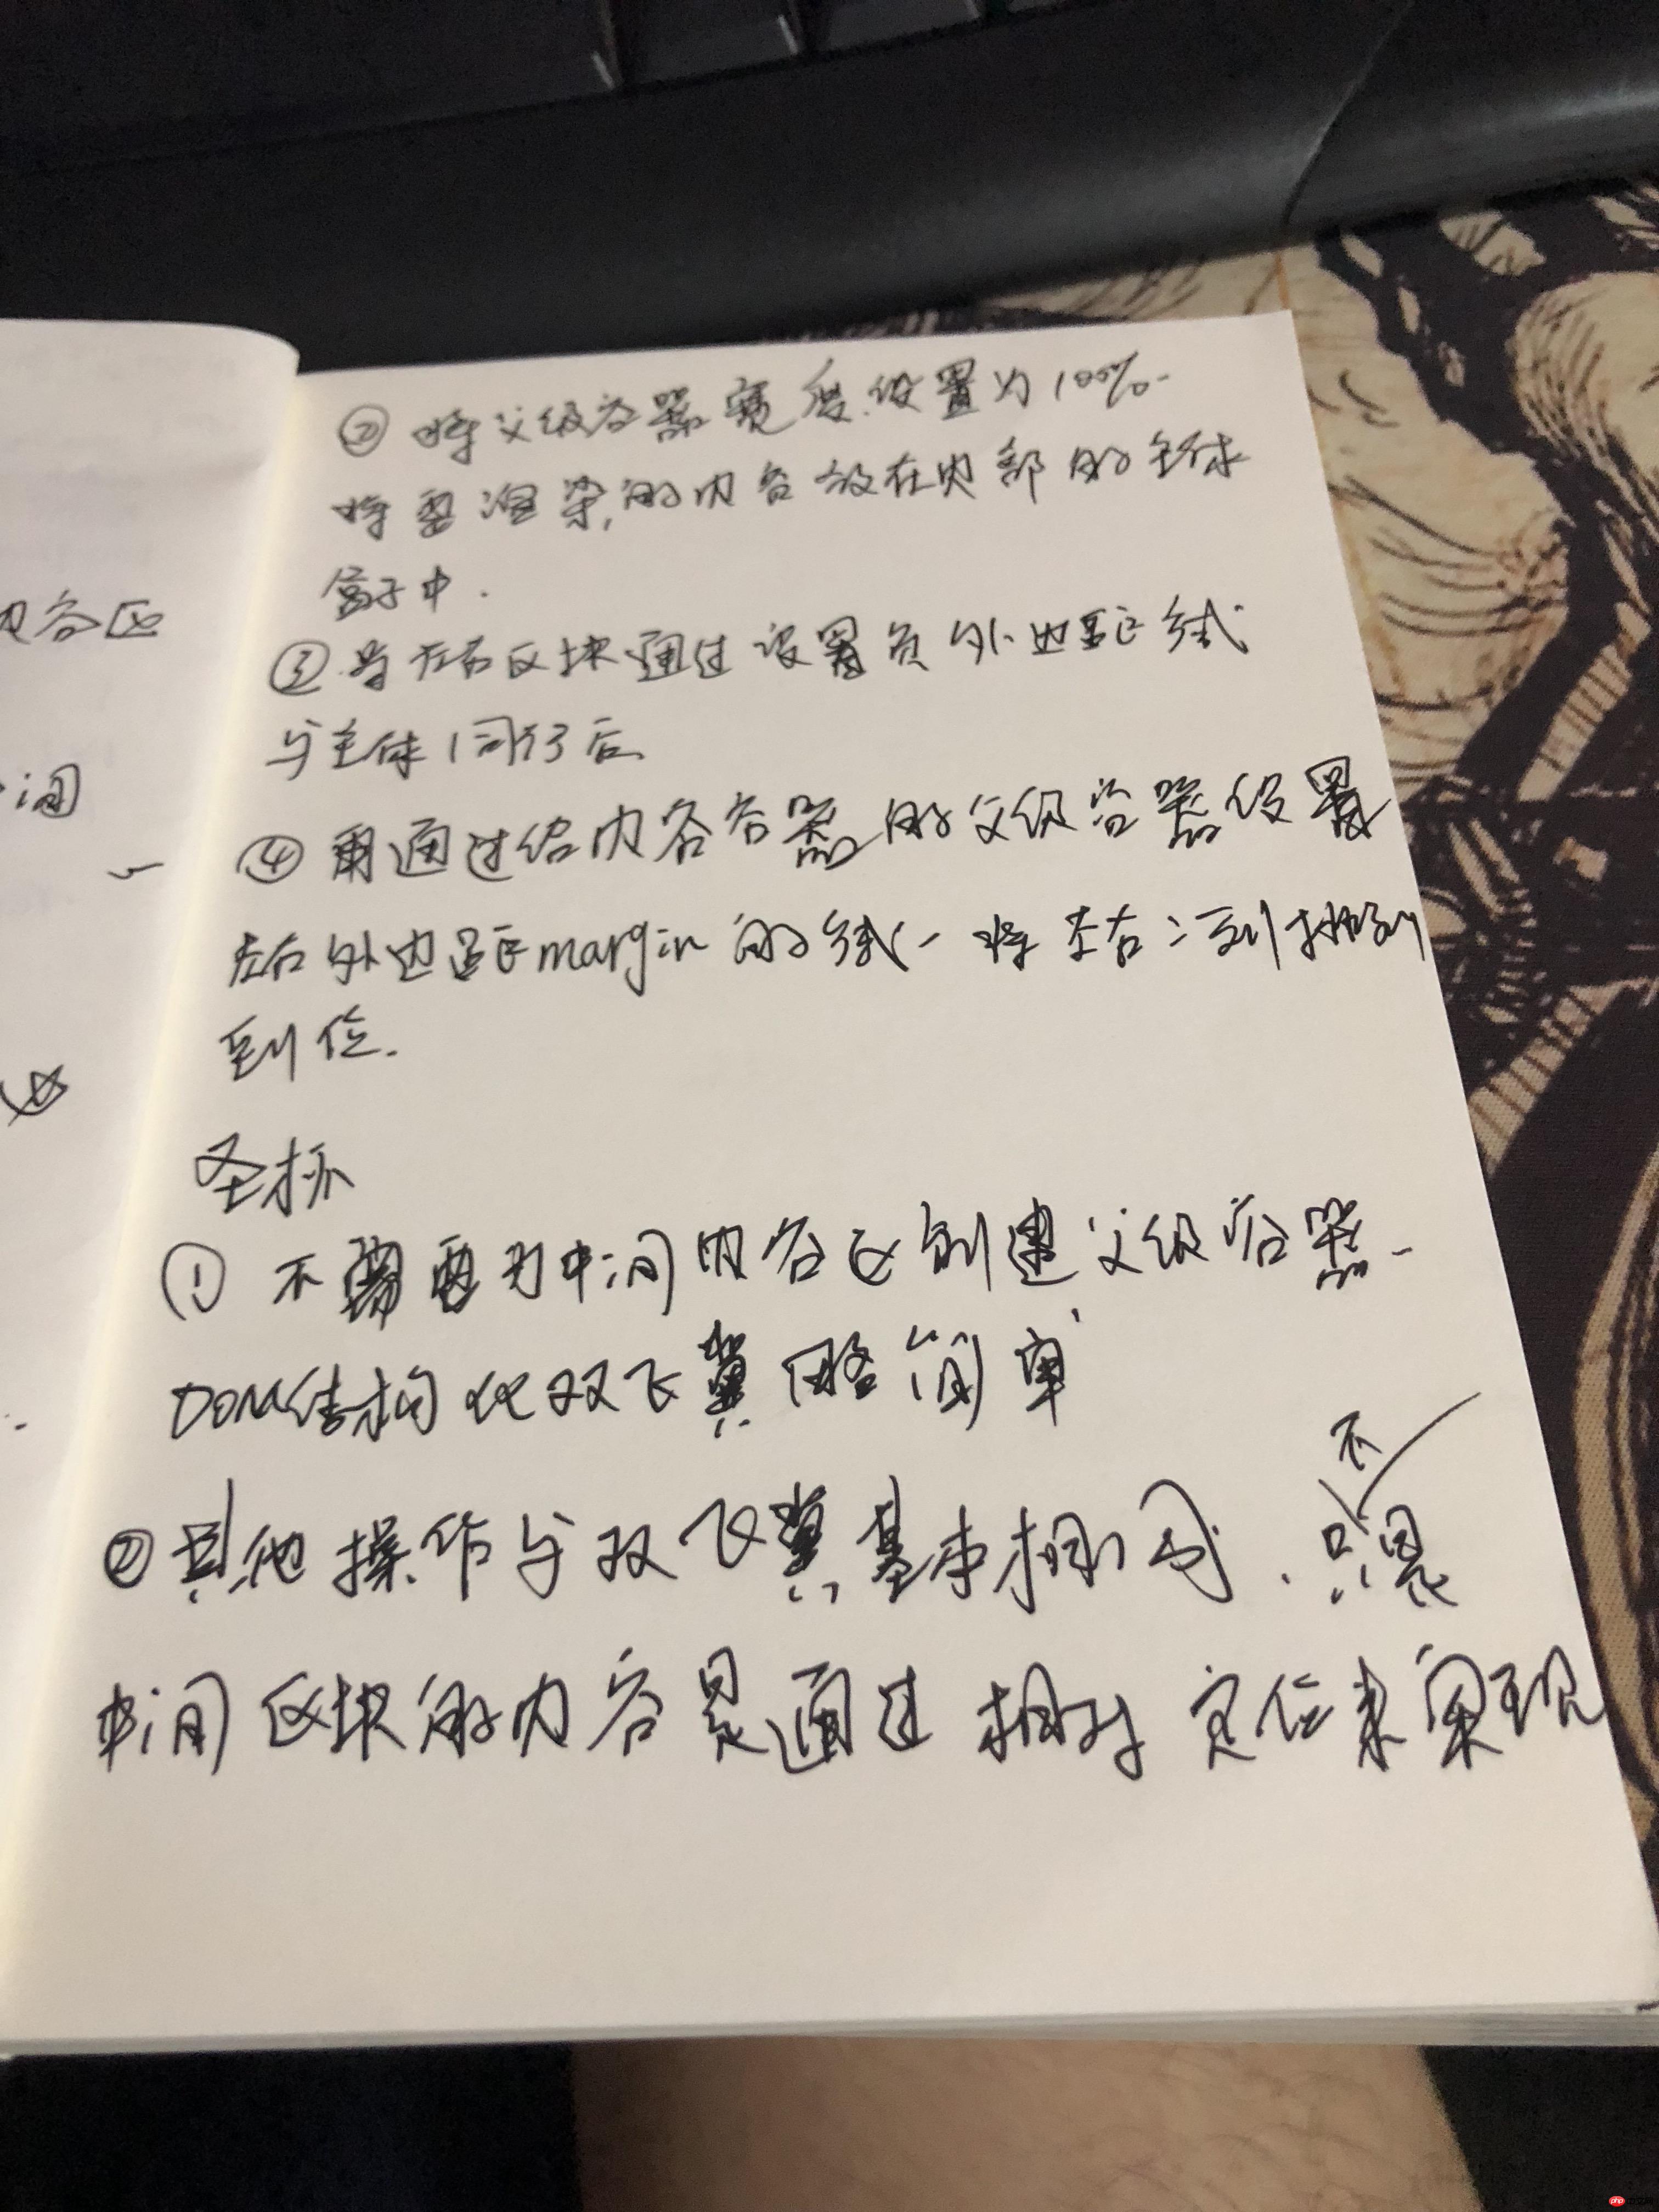 内容区
中间
② 将父级容器宽度设置为100%.
将要渲染的内容放在内部的主体
盒子中.
③ 当左右区块通过设置负外边距线
与主体同行后
④ 再通过给内容容器的父级容器设置
左右外边距margin的线- 将左右二列排列
到位.
圣杯
① 不需要为中间内容区创建父级容器-
DOM结构比双飞翼略简单
② 其他操作与双飞翼基本相同. 只不是
中间区块的内容是通过相对定位来实现
php